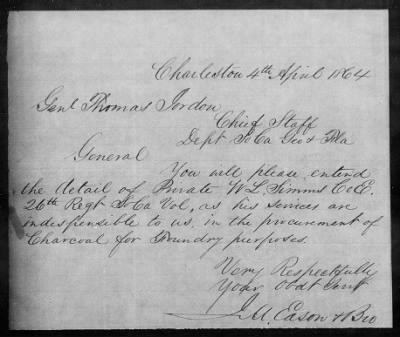 Charleston 4th April 1864
Genl Thomas Jordon
Chief Staff
Dept So Ca Geo & Fla
General
You will please extend
the detail of Private W. L. Simms Co E.
26th Regt So Ca Vol, as his services are
indispensible to us, in the procurement of
Charcoal for Foundry purposes.
Very Respectfully
Your Obdt Servt
J. M. Eason & Bro